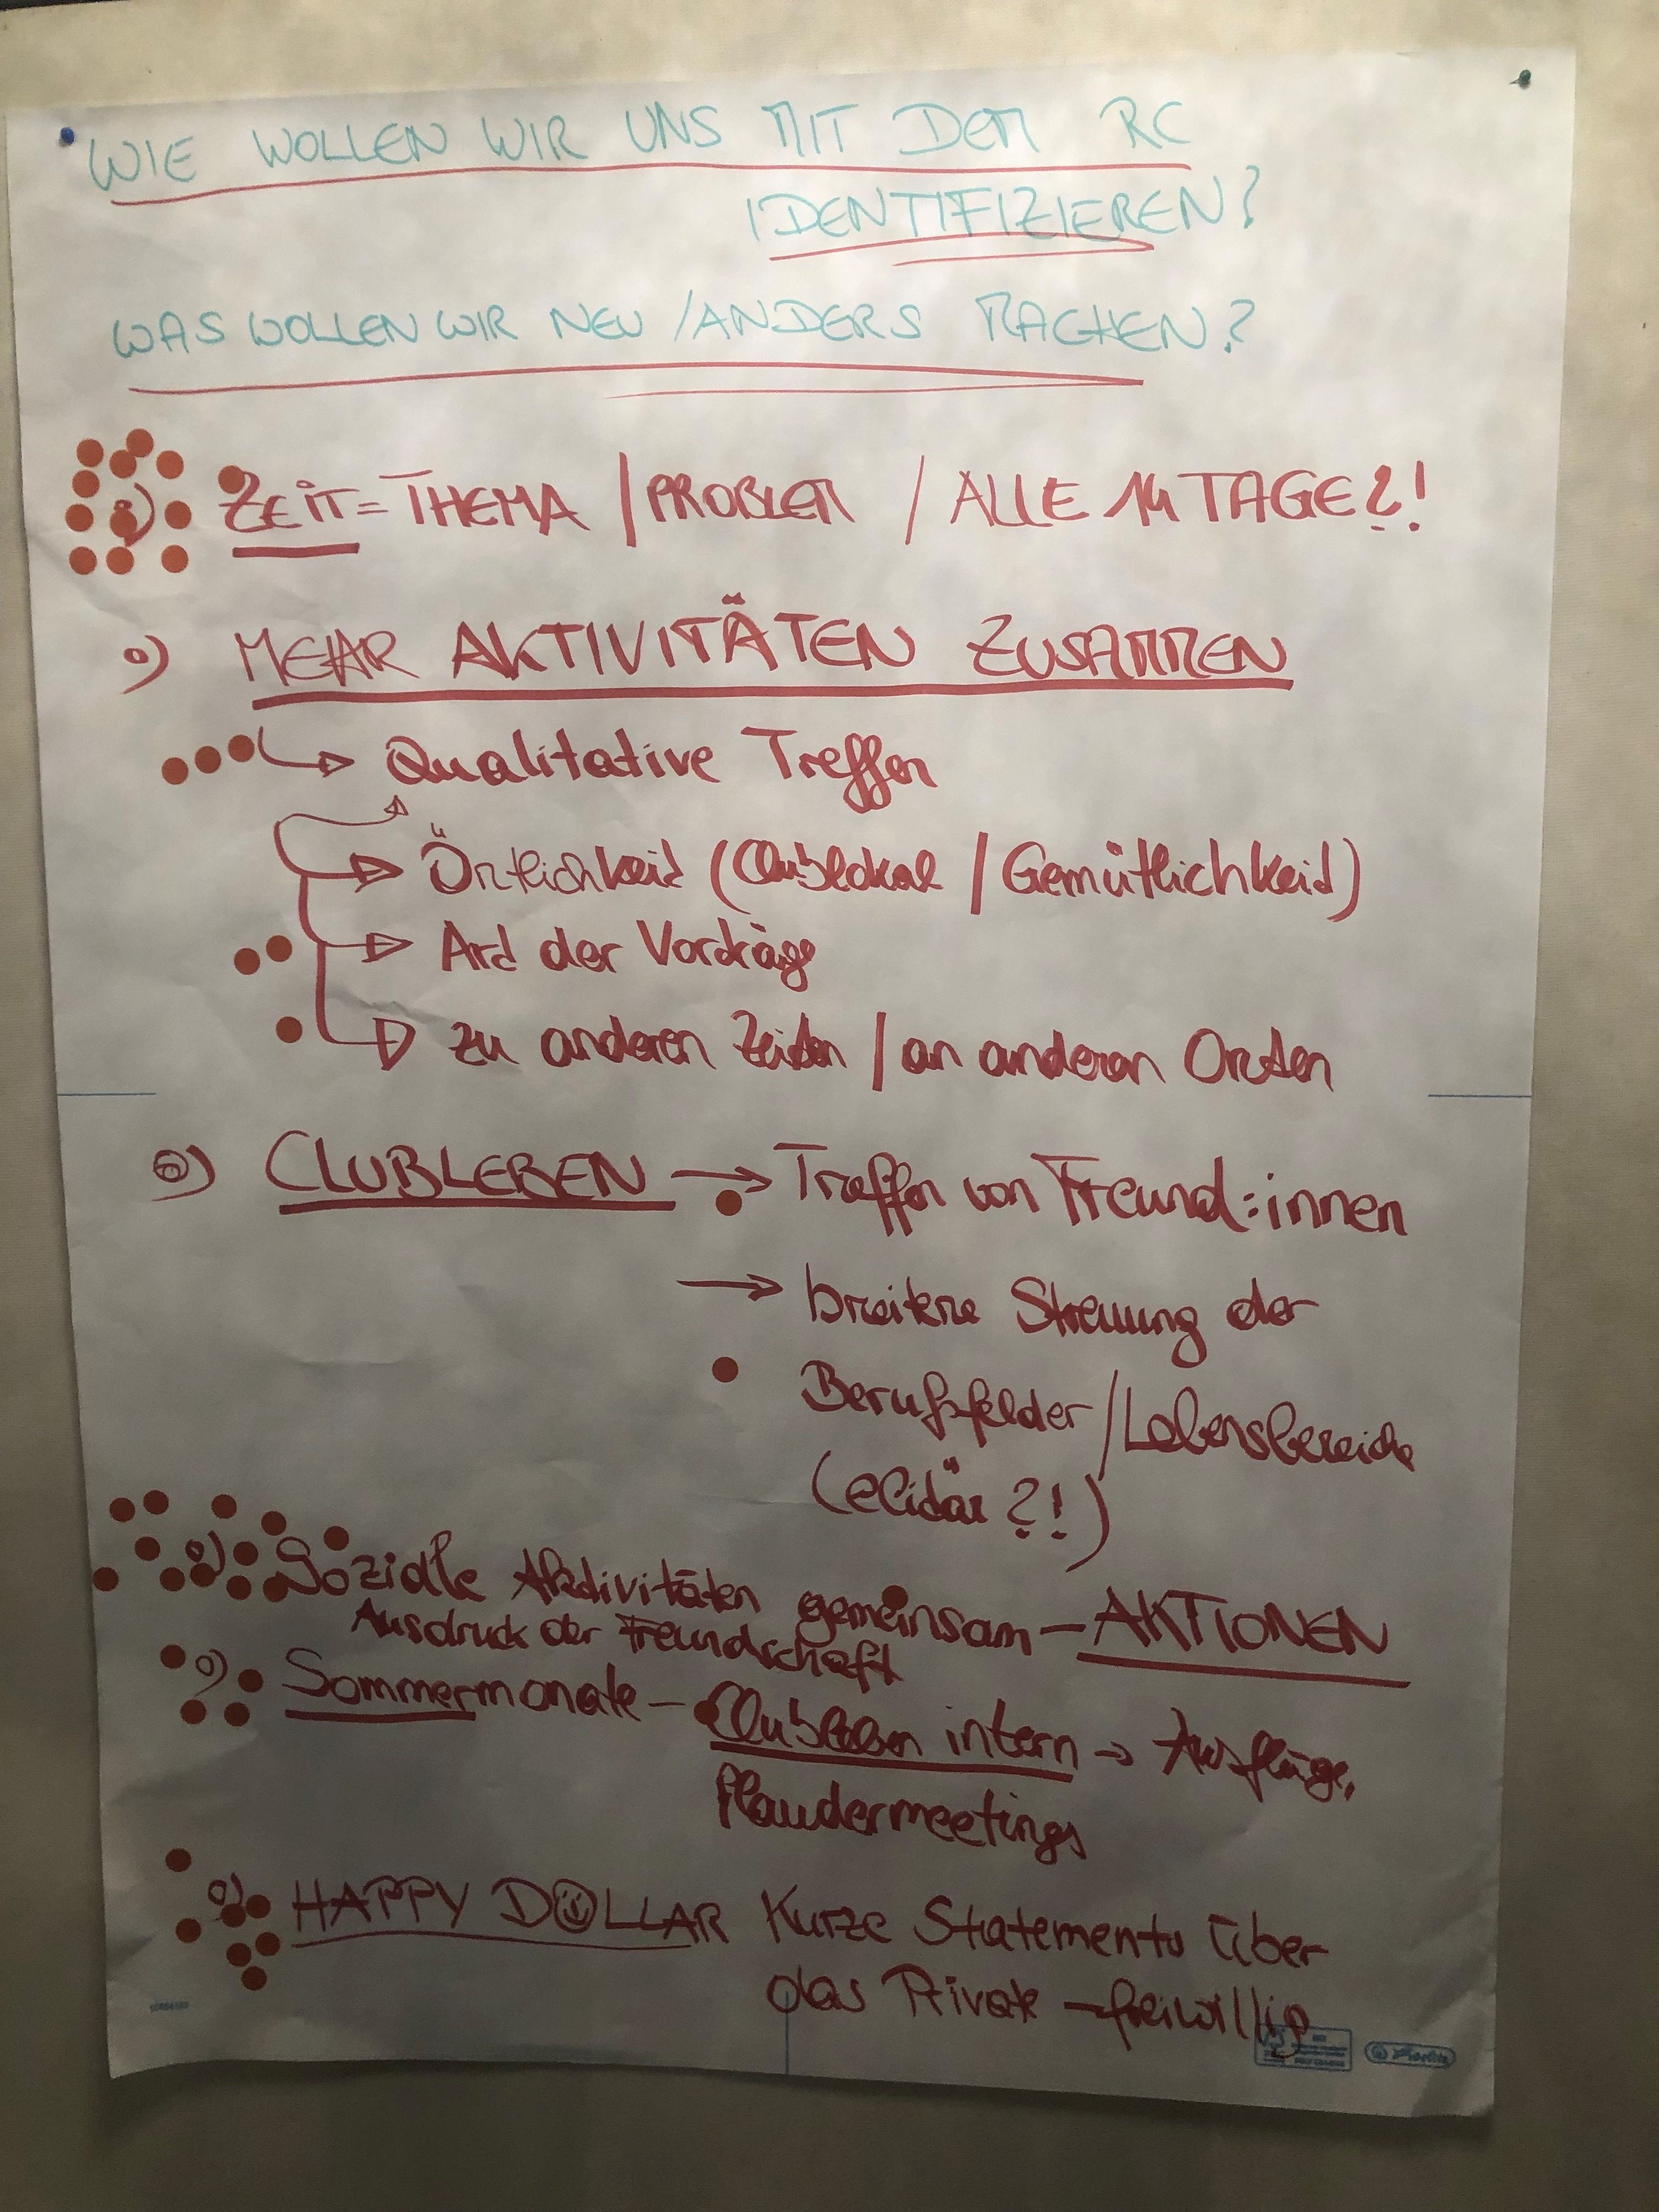 WIE WOLLEN WIR UNS MIT DEM RC
IDENTIFIZIEREN?
WAS WOLLEN WIR NEU / ANDERS MACHEN?
ZEIT = THEMA / PROBLEM / ALLE 14 TAGE?!
MEHR AKTIVITÄTEN ZUSAMMEN
Qualitative Treffen
Örtlichkeit (Clublokal / Gemütlichkeit)
Art der Vorträge
zu anderen Zeiten / an anderen Orten
CLUBLEBEN → Treffen von Freund:innen
→ breitere Streuung der
Berufsfelder / Lebensbereiche
(elitär ?!)
Soziale Aktivitäten gemeinsam – AKTIONEN
Ausdruck der Freundschaft
Sommermonate – Clubleben intern → Ausflüge,
Plaudermeetings
HAPPY DOLLAR Kurze Statements über
das Private – freiwillig